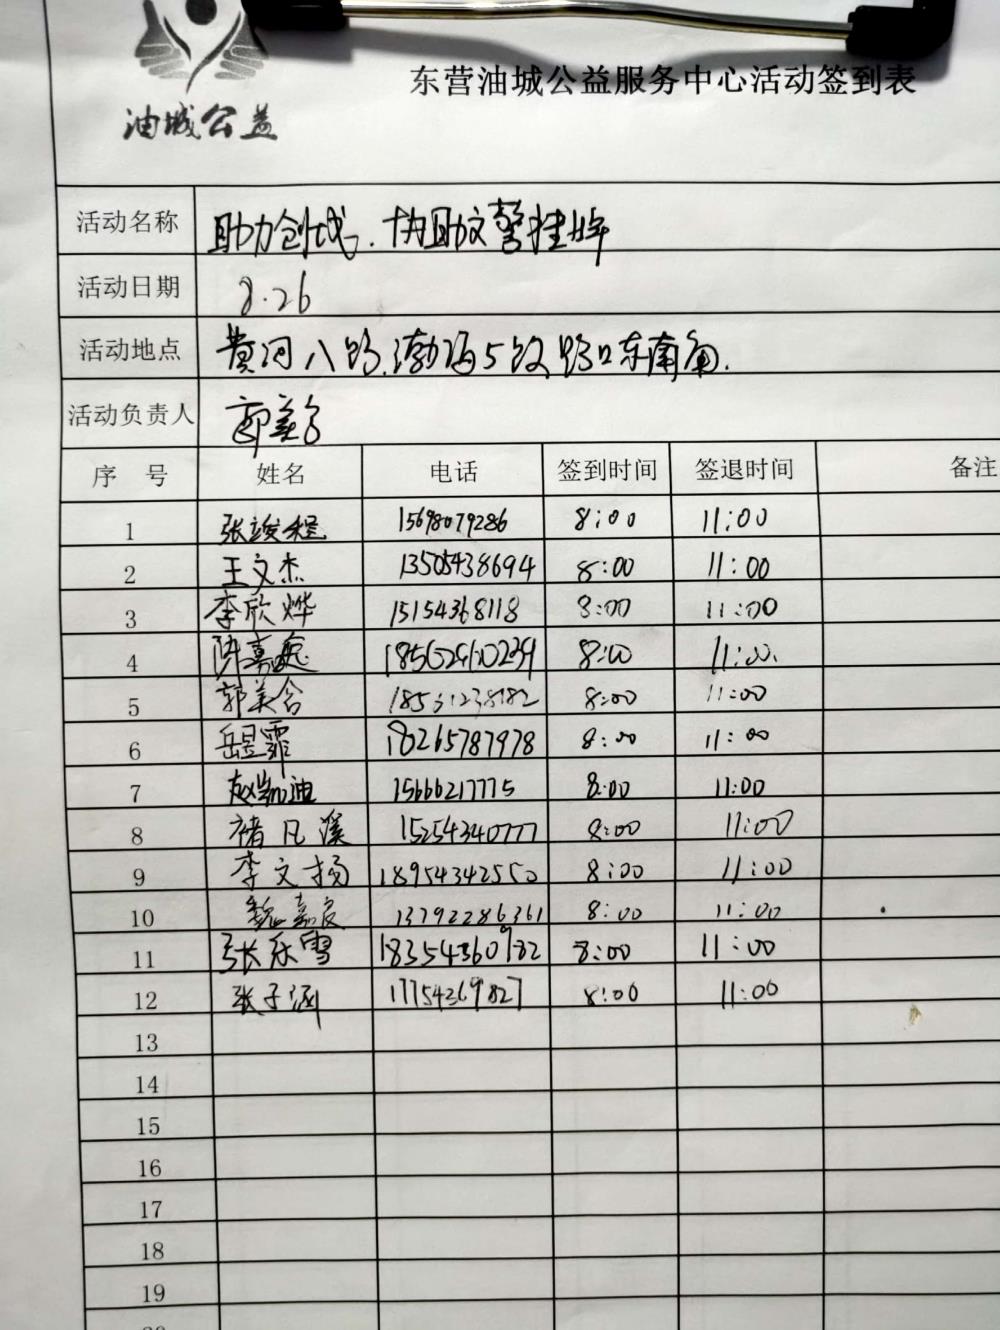 油城公益
东营油城公益服务中心活动签到表
活动名称 助力创城.协助交警挂牌
活动日期 8.26
活动地点 黄河八路,渤海5路 路口东南角.
活动负责人 郭美含
序 号 姓名 电话 签到时间 签退时间 备注
1 张竣程 15698079286 8:00 11:00
2 王文杰 13505438694 8:00 11:00
3 李欣烨 15154368118 8:00 11:00
4 陈嘉逸 8:00 11:00
5 郭美含 18531238182 8:00 11:00
6 岳昱霏 18265787978 8:00 11:00
7 赵凯迪 15666217775 8:00 11:00
8 褚凡溪 15254340777 8:00 11:00
9 李文扬 18954342550 8:00 11:00
10 魏嘉良 13792286361 8:00 11:00
11 张乐雪 18354360982 8:00 11:00
12 张子涵 17754269827 8:00 11:00
13
14
15
16
17
18
19